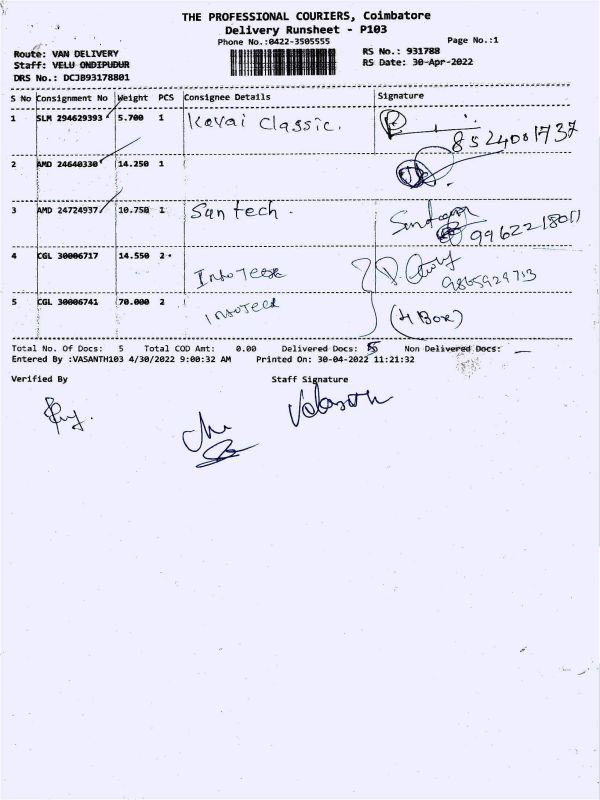 THE PROFESSIONAL COURIERS, Coimbatore
Delivery Runsheet - P103
Phone No.:0422-3505555
Page No.:1
Route: VAN DELIVERY
RS No.: 931788
Staff: VELU ONDIPUDUR
RS Date: 30-Apr-2022
DRS No.: DCJB93178801
S No Consignment No Weight PCS Consignee Details Signature
1 SLM 294629393 5.700 1 Kovai Classic.
8524001737
2 AMD 24640330 14.250 1
3 AMD 24724937 10.750 1 Suntech.
9962218011
4 CGL 30006717 14.550 2
9865929713
5 CGL 30006741 70.000 2
(4 Box)
Total No. Of Docs: 5 Total COD Amt: 0.00 Delivered Docs: 5 Non Delivered Docs: —
Entered By :VASANTH103 4/30/2022 9:00:32 AM Printed On: 30-04-2022 11:21:32
Verified By Staff Signature